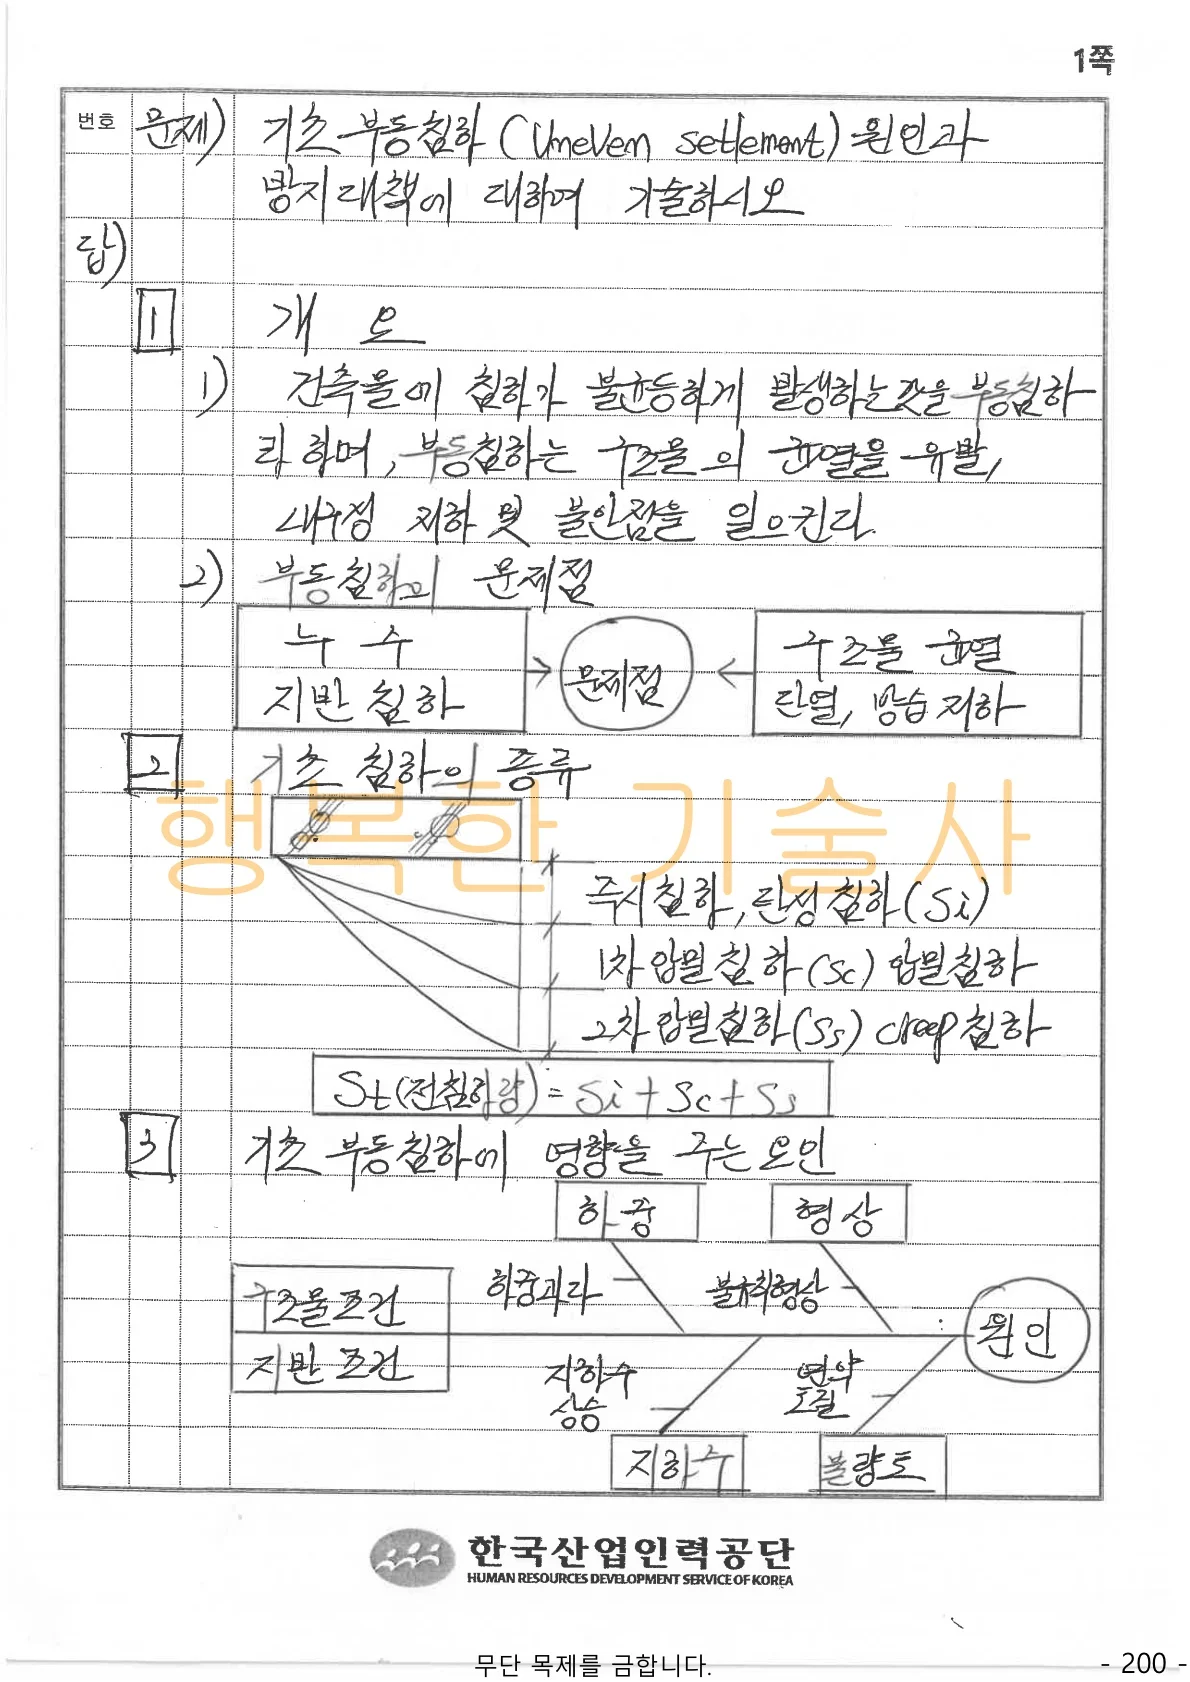 1쪽
번호 문제) 기초 부동침하 (Uneven setlement) 원인과
방지대책에 대하여 기술하시오
답)
1 개 요
1) 건축물에 침하가 불균등하게 발생하는 것을 부동침하
라 하며, 부동침하는 구조물의 균열을 유발,
내구성 저하 및 불안점을 일으킨다.
2) 부동침하의 문제점
누 수
지반 침하
문제점
구조물 균열
단열, 방습 저하
2 기초 침하의 종류
행복한 기술사
즉시침하, 탄성침하(Si)
1차 압밀침하(Sc) 압밀침하
2차 압밀침하(Ss) creep침하
St(전침하량) = Si + Sc + Ss
3 기초 부동침하에 영향을 주는 요인
하중 형상
구조물조건 하중과다 불규칙형상
원인
지반 조건 지하수 연약
상승 토질
지하수 불량토
한국산업인력공단
HUMAN RESOURCES DEVELOPMENT SERVICE OF KOREA
무단 목제를 금합니다. - 200 -